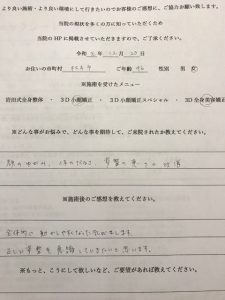 より良い施術・より良い環境にして行きたいのでお客様のご感想に、ご協力お願い致します。
当院の現状を多くの方に知っていただくため
当院の HP に掲載させていただきますので、ご了承ください。
令和 年 12 月 20 日
お住いの市町村 ご年齢 性別 男
※施術を受けたメニュー
岩田式全身整体 ・ 3D 小顔矯正 ・ 3D 小顔矯正スペシャル ・ 3D 全身美容矯正
※どんな事がお悩みで、どんな事を期待して、ご来院されたか教えてください。
顔のゆがみ、
※施術後のご感想を教えてください。
全体的に動かしやすくなった気がします。
正しい姿勢を意識していきたいと思います。
※もっと、こうにして欲しいなど、ご要望があれば教えてください。